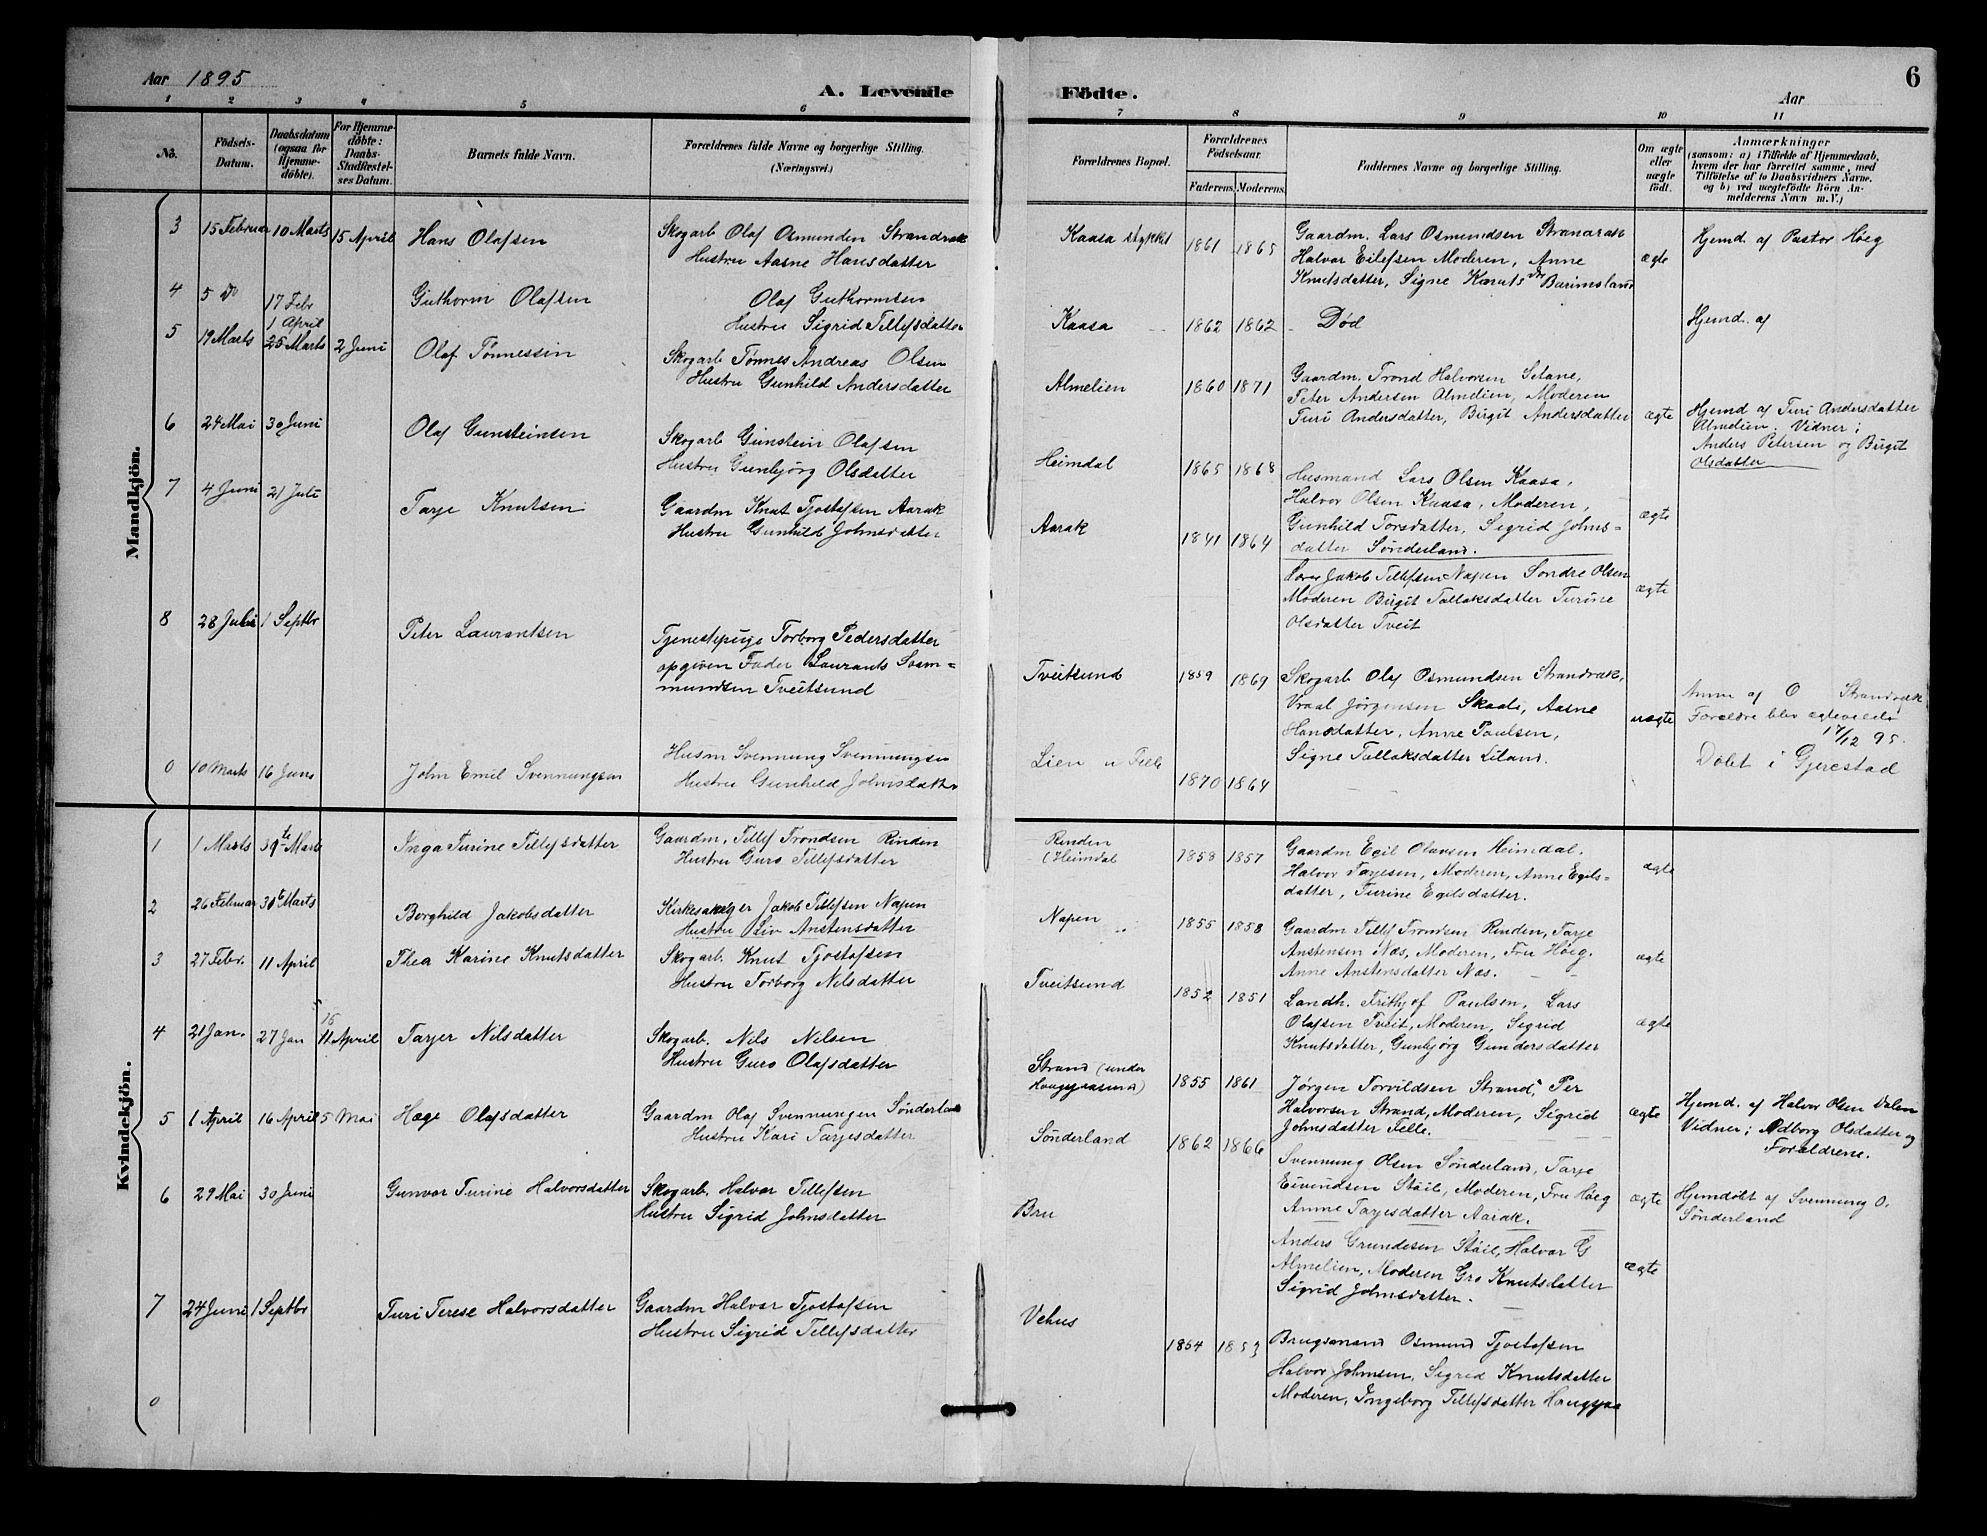 Aar 1895
A. Levende
Födte.
Aar
6
1 2 3 4 5 6 7 8 9 10 11
No.
Födsels-Datum.
Daabsdatum (ogsaa for Hjemme-döbte).
For Hjemme-döbte: Daabs-Stadfæstel-ses Datum.
Barnets fulde Navn.
Forældrenes fulde Navne og borgerlige Stilling. (Næringsvei.)
Forældrenes Bopæl.
Forældrenes Födselsaar.
Faderens. Moderens.
Faddernes Navne og borgerlige Stilling.
Om ægte eller uægte födt.
Anmærkninger
(saasom: a) i Tilfælde af Hjemmedaab,
hvem der har forrettet samme, med
Tilföielse af to Daabsvidners Navne.
og b) ved uægtefödte Börn An-
melderens Navn m.V.)
Mandkjön.
3 15 Februar 10 Marts 15 April Hans Olafsen
Skogarb Olaf Osmunden Strandrak
Hustru Aasne Hansdatter
Kaasa stykket 1861 1865
Gaardm. Lars Osmundsen Strandrak
Halvor Eilefsen Moderen, Anne
Knutsdatter, Signe Knutsdr Burimsland
ægte
Hjemd. af Pastor Høeg
4 5 Do 17 Febr Guthorm Olafsen
Olaf Guthormsen
Hustru Sigrid Tellefsdatter
Kaasa 1862 1862 Død
Hjemd. af
1 April
5 19 Marts 25 Marts 2 Juni Olaf Tønnessen
Skogarb Tønnes Andreas Olsen
Hustru Gunhild Andersdatter
Almelien 1860 1871
Gaardm. Trond Halvorsen Setane,
Peter Andersen Almelien, Moderen
Turi Andersdatter, Birgit Andersdatter
ægte
Hjemd af Turi Andersdatter
Almelien. Vidner:
Anders Petersen og Birgit
Olsdatter
6 24 Mai 30 Juni Olaf Gunsteinsen
Skogarb Gunstein Olafsen
Hustru Gunbjørg Olsdatter
Heimdal 1865 1868
Husmand Lars Olsen Kaasa,
Halvor Olsen Kaasa, Moderen,
Gunhild Torsdatter, Sigrid Johns-
datter Sønderland.
ægte
7 4 Juni 21 Juli Tarje Knutsen
Gaardm Knut Tjostofsen Aarak
Hustru Gunhild Johnsdatter
Aarak 1841 1864
Jakob Tellefsen Napen Søndre Olsen
Moderen Birgit Tallaksdatter Turine
Olsdatter Tveit
ægte
8 28 Juli 1 Septbr Peter Laurantsen
Tjenestepige Torborg Pedersdatter
opgiven Fader Laurants Saam-
mundsen Tveitsund
Tveitsund 1859 1869
Skogarb Olaf Osmundsen Strandrak,
Vraal Jørgensen Skaali, Aasne
Hansdatter, Anne Paulsen,
Signe Tallaksdatter Liland.
uægte
Anm af O Strandrak
Forældre blev ægteviede
17/12 95.
0 10 Marts 16 Juni John Emil Svennungsen
Husm Svennung Svennungsen
Hustru Gunhild Johnsdatter
Lien u Felle 1870 1864
Døbt i Gjerestad
Kvindekjön.
1 1 Marts 31te Marts Inga Turine Tellefsdatter
Gaardm, Tellef Trondsen Rinden
Hustru Guro Tellefsdatter
Rinden
(Heimdal 1858 1857
Gaardm Egil Olavsen Heimdal.
Halvor Tarjesen, Moderen, Anne Egils-
datter, Turine Egilsdatter.
ægte
2 26 Februar 31te Marts Borghild Jakobsdatter
Kirkesanger Jakob Tellefsen Napen
Hustru Liv Anstensdatter
Napen 1855 1858
Gaardm Tellef Trondsen Rinden, Tarje
Anstensen Næs, Moderen, Fru Høeg.
Anne Anstensdatter Næs.
ægte
3 27 Febr. 11 April Thea Karine Knutsdatter
Skogarb. Knut Tjostofsen
Hustru Torborg Nilsdatter
Tveitsund 1852 1851
Landh. Frithjof Paulsen, Lars
Olafsen Tveit, Moderen, Sigrid
Knutsdatter, Gunbjørg Gundersdatter
ægte
4 21 Jan. 27 Jan 15 11 April Tarjer Nilsdatter
Skogarb. Nils Nilsen
Hustru Guro Olafsdatter
Strand (under
1855 1861
Jørgen Torvildsen Strand, Per
Halvorsen Strand, Moderen, Sigrid
Johnsdatter Felle.
ægte
Hjemd. af Halvor Olsen Dalen
Vidner; Adborg Olsdatter og
Forældrene.
5 1 April 16 April 5 Mai Hæge Olafsdatter
Gaardm Olaf Svennungen Sønderland
Hustru Kari Tarjesdatter
Sønderland 1862 1866
Svennung Olsen Sønderland, Tarje
Eivindsen Støil, Moderen, Fru Høeg
Anne Tarjesdatter Aarak.
ægte
Hjemdøbt af Svennung O.
Sønderland
6 29 Mai 30 Juni Gunvor Turine Halvorsdatter
Skogarb. Halvor Tellefsen
Hustru Sigrid Johnsdatter
Bru
Anders Grundesen Støil, Halvor G
Almelien, Moderen Gro Knutsdatter
Sigrid Johnsdatter.
ægte
7 24 Juni 1 Septbr Turi Terese Halvorsdatter
Gaardm Halvor Tjostofsen
Hustru Sigrid Tellefsdatter
Vehus 1854 1853
Brugsmand Osmund Tjostofsen
Halvor Johnsen, Sigrid Knutsdatter
Moderen, Ingeborg Tellefsdatter
0